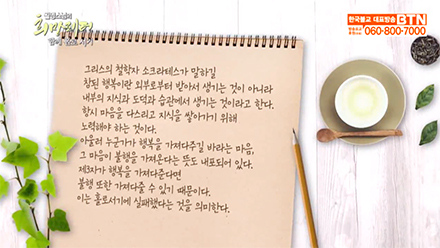 희망편지
한국불교 대표방송 BTN
060-800-7000
그리스의 철학자 소크라테스가 말하길
참된 행복이란 외부로부터 받아서 생기는 것이 아니라
내부의 지식과 도덕과 습관에서 생기는 것이라고 한다.
항시 마음을 다스리고 지식을 쌓아가기 위해
노력해야 하는 것이다.
아울러 누군가가 행복을 가져다주길 바라는 마음,
그 마음이 불행을 가져온다는 뜻도 내포되어 있다.
제3자가 행복을 가져다준다면
불행 또한 가져다줄 수 있기 때문이다.
이는 홀로서기에 실패했다는 것을 의미한다.